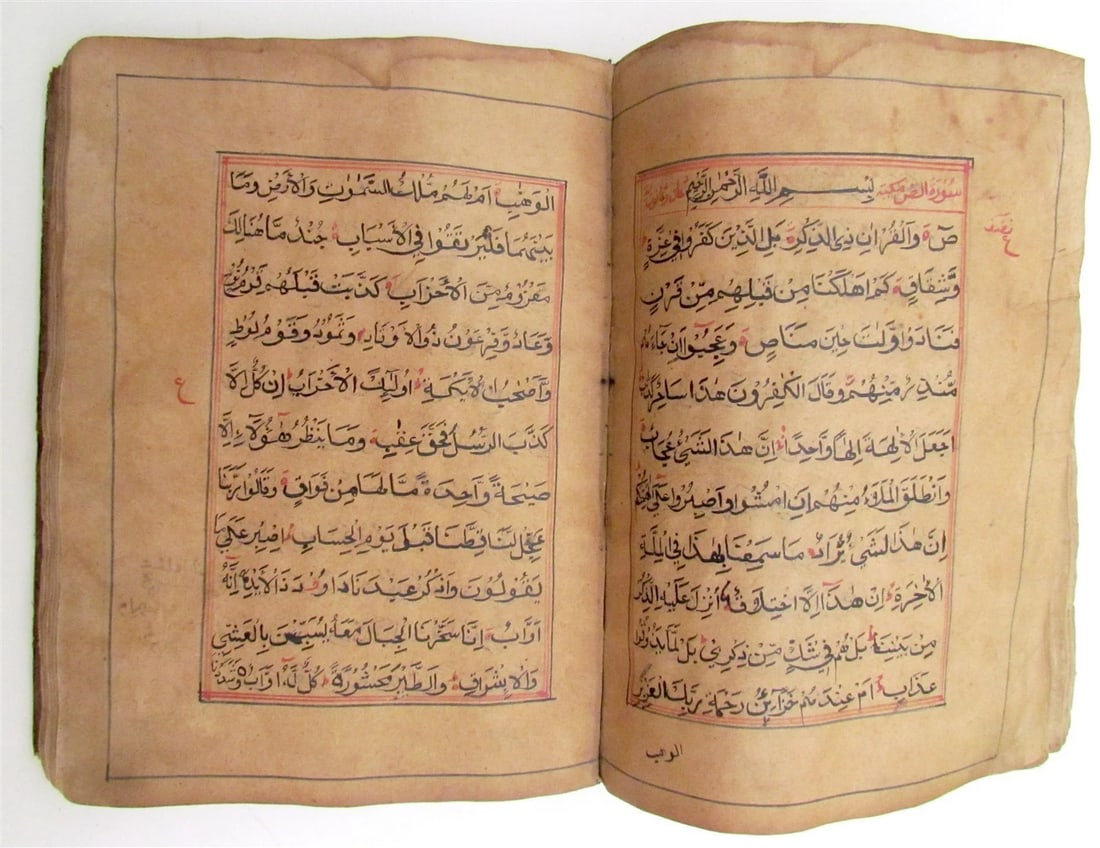 سورة الص مكية بسم الله الرحمن الرحيم
صۤ وَالْقُرْاٰنِ ذِی الذِّكْرِ بَلِ الَّذِیْنَ كَفَرُوْا فِیْ عِزَّةٍ
وَّشِقَاقٍ كَمْ اَهْلَكْنَا مِنْ قَبْلِهِمْ مِّنْ قَرْنٍ
فَنَادَوْا وَّلَاتَ حِیْنَ مَنَاصٍ وَعَجِبُوْۤا اَنْ جَآءَهُمْ
مُّنْذِرٌ مِّنْهُمْ وَقَالَ الْكٰفِرُوْنَ هٰذَا سَاحِرٌ كَذَّابٌ
اَجَعَلَ الْاٰلِهَةَ اِلٰهًا وَّاحِدًا اِنَّ هٰذَا الشَیْءٌ عُجَابٌ
وَانْطَلَقَ الْمَلَاُ مِنْهُمْ اَنِ امْشُوْا وَاصْبِرُوْا عَلٰۤی اٰلِهَتِكُمْ
اِنَّ هٰذَا الشَیْءٌ یُّرَادُ مَا سَمِعْنَا بِهٰذَا فِی الْمِلَّةِ
الْاٰخِرَةِ اِنْ هٰذَاۤ اِلَّا اخْتِلَاقٌ ءَاُنْزِلَ عَلَیْهِ الذِّكْرُ
مِنْ بَیْنِنَا بَلْ هُمْ فِیْ شَكٍّ مِّنْ ذِكْرِیْ بَلْ لَّمَّا یَذُوْقُوْا
عَذَابِ اَمْ عِنْدَهُمْ خَزَآئِنُ رَحْمَةِ رَبِّكَ الْعَزِیْزِ
الوهب
الْوَهَّابِ اَمْ لَهُمْ مُّلْكُ السَّمٰوٰتِ وَالْاَرْضِ وَمَا
بَیْنَهُمَا فَلْیَرْتَقُوْا فِی الْاَسْبَابِ جُنْدٌ مَّا هُنَالِكَ
مَهْزُوْمٌ مِّنَ الْاَحْزَابِ كَذَّبَتْ قَبْلَهُمْ قَوْمُ نُوْحٍ
وَّعَادٌ وَّفِرْعَوْنُ ذُو الْاَوْتَادِ وَثَمُوْدُ وَقَوْمُ لُوْطٍ
وَّاَصْحٰبُ الْاَیْكَةِ اُولٰٓئِكَ الْاَحْزَابُ اِنْ كُلٌّ اِلَّا
كَذَّبَ الرُّسُلَ فَحَقَّ عِقَابِ وَمَا یَنْظُرُ هٰۤؤُلَآءِ اِلَّا
صَیْحَةً وَّاحِدَةً مَّا لَهَا مِنْ فَوَاقٍ وَقَالُوْا رَبَّنَا
عَجِّلْ لَّنَا قِطَّنَا قَبْلَ یَوْمِ الْحِسَابِ اِصْبِرْ عَلٰی مَا
یَقُوْلُوْنَ وَاذْكُرْ عَبْدَنَا دَاوٗدَ ذَا الْاَیْدِ اِنَّهٗۤ
اَوَّابٌ اِنَّا سَخَّرْنَا الْجِبَالَ مَعَهٗ یُسَبِّحْنَ بِالْعَشِیِّ
وَالْاِشْرَاقِ وَالطَّیْرَ مَحْشُوْرَةً كُلٌّ لَّهٗۤ اَوَّابٌ وَشَدَدْنَا
ع